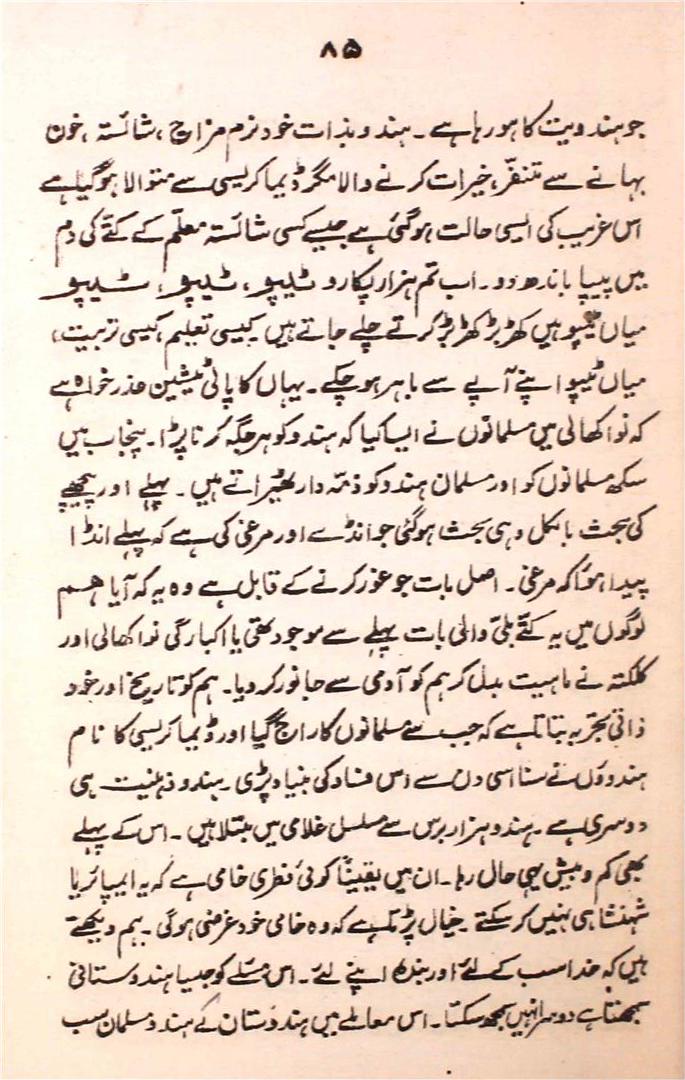 ۸۵
جو ہندویت کا ہو رہا ہے ۔ ہندو بذات خود نرم مزاج ، شائستہ ، خون
بہانے سے متنفّر، خیرات کرنے والا مگر ڈیماکریسی سے متوالا ہو گیا ہے
اس غریب کی ایسی حالت ہو گئی ہے جیسے کسی شائستہ معلّم کے کتّے کی دم
میں پیپا باندھ دو ۔ اب تم ہزار پکارو ٹیپو ، ٹیپو ، ٹیپو
میاں ٹیپو ہیں کھڑبڑ کھڑبڑ کرتے چلے جاتے ہیں کیسی تعلیم ، کیسی تربیت ،
میاں ٹیپو اپنے آپے سے باہر ہو چکے ۔ یہاں کا پالی ٹیشین عذر خواہ ہے
کہ نواکھالی میں مسلمانوں نے ایسا کیا کہ ہندو کو ہر جگہ کرنا پڑا ۔ پنجاب میں
سکھ مسلمانوں کو اور مسلمان ہندو کو ذمّہ دار ٹھیراتے ہیں ۔ پہلے اور پیچھے
کی بحث بالکل وہی بحث ہو گئی جو انڈے اور مرغی کی ہے کہ پہلے انڈا
پیدا ہوُا کہ مرغی ۔ اصل بات جو غور کرنے کے قابل ہے وہ یہ کہ آیا ہم
لوگوں میں یہ کتّے بلّی والی بات پہلے سے موجود تھی یا اکبارگی نواکھالی اور
کلکتہ نے ماہیت بدل کر ہم کو آدمی سے جانور کر دیا ۔ ہم کو تاریخ اور خود
ذاتی تجربہ بتاتا ہے کہ جب سے مسلمانوں کا راج گیا اور ڈیماکریسی کا نام
ہندوؤں نے سنا اسی دن سے اس فساد کی بنیاد پڑی ۔ ہندو ذہنیت ہی
دوسری ہے ۔ ہندو ہزار برس سے مسلسل غلامی میں مبتلا ہیں ۔ اس کے پہلے
بھی کم و بیش یہی حال رہا ۔ ان میں یقیناً کوئی فطری خامی ہے کہ یہ ایمپائر یا
شہنشاہی نہیں کر سکتے ۔ خیال پڑتا ہے کہ وہ خامی خود غرضی ہو گی ۔ ہم دیکھتے
ہیں کہ خدا سب کے لئے اور بندہ اپنے لئے ۔ اس مسٔلے کو جیسا ہندوستانی
سمجھتا ہے دوسرا نہیں سمجھ سکتا ۔ اس معاملے میں ہندوستان کے ہندو مسلمان سب